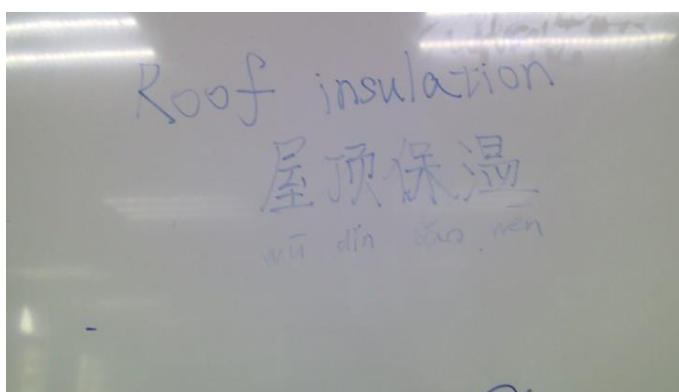 Roof insulation
屋顶保温
wū dǐn bǎo wēn